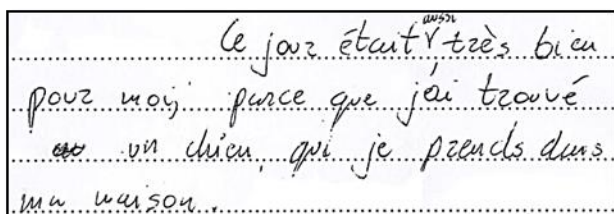 Ce jour était aussi très bien
pour moi, parce que j'ai trouvé
un chien, qui je prends dans
ma maison.